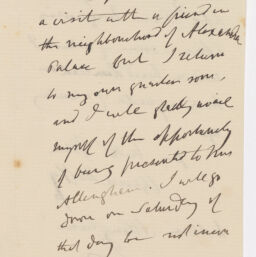 a visit with a friend in
the neighbourhood of Alexandra
Palace but I return
to my own quarters soon,
and I will gladly avail
myself of the opportunity
of being presented to Mrs
Allingham. I will go
down on Saturday if
that day be not incon